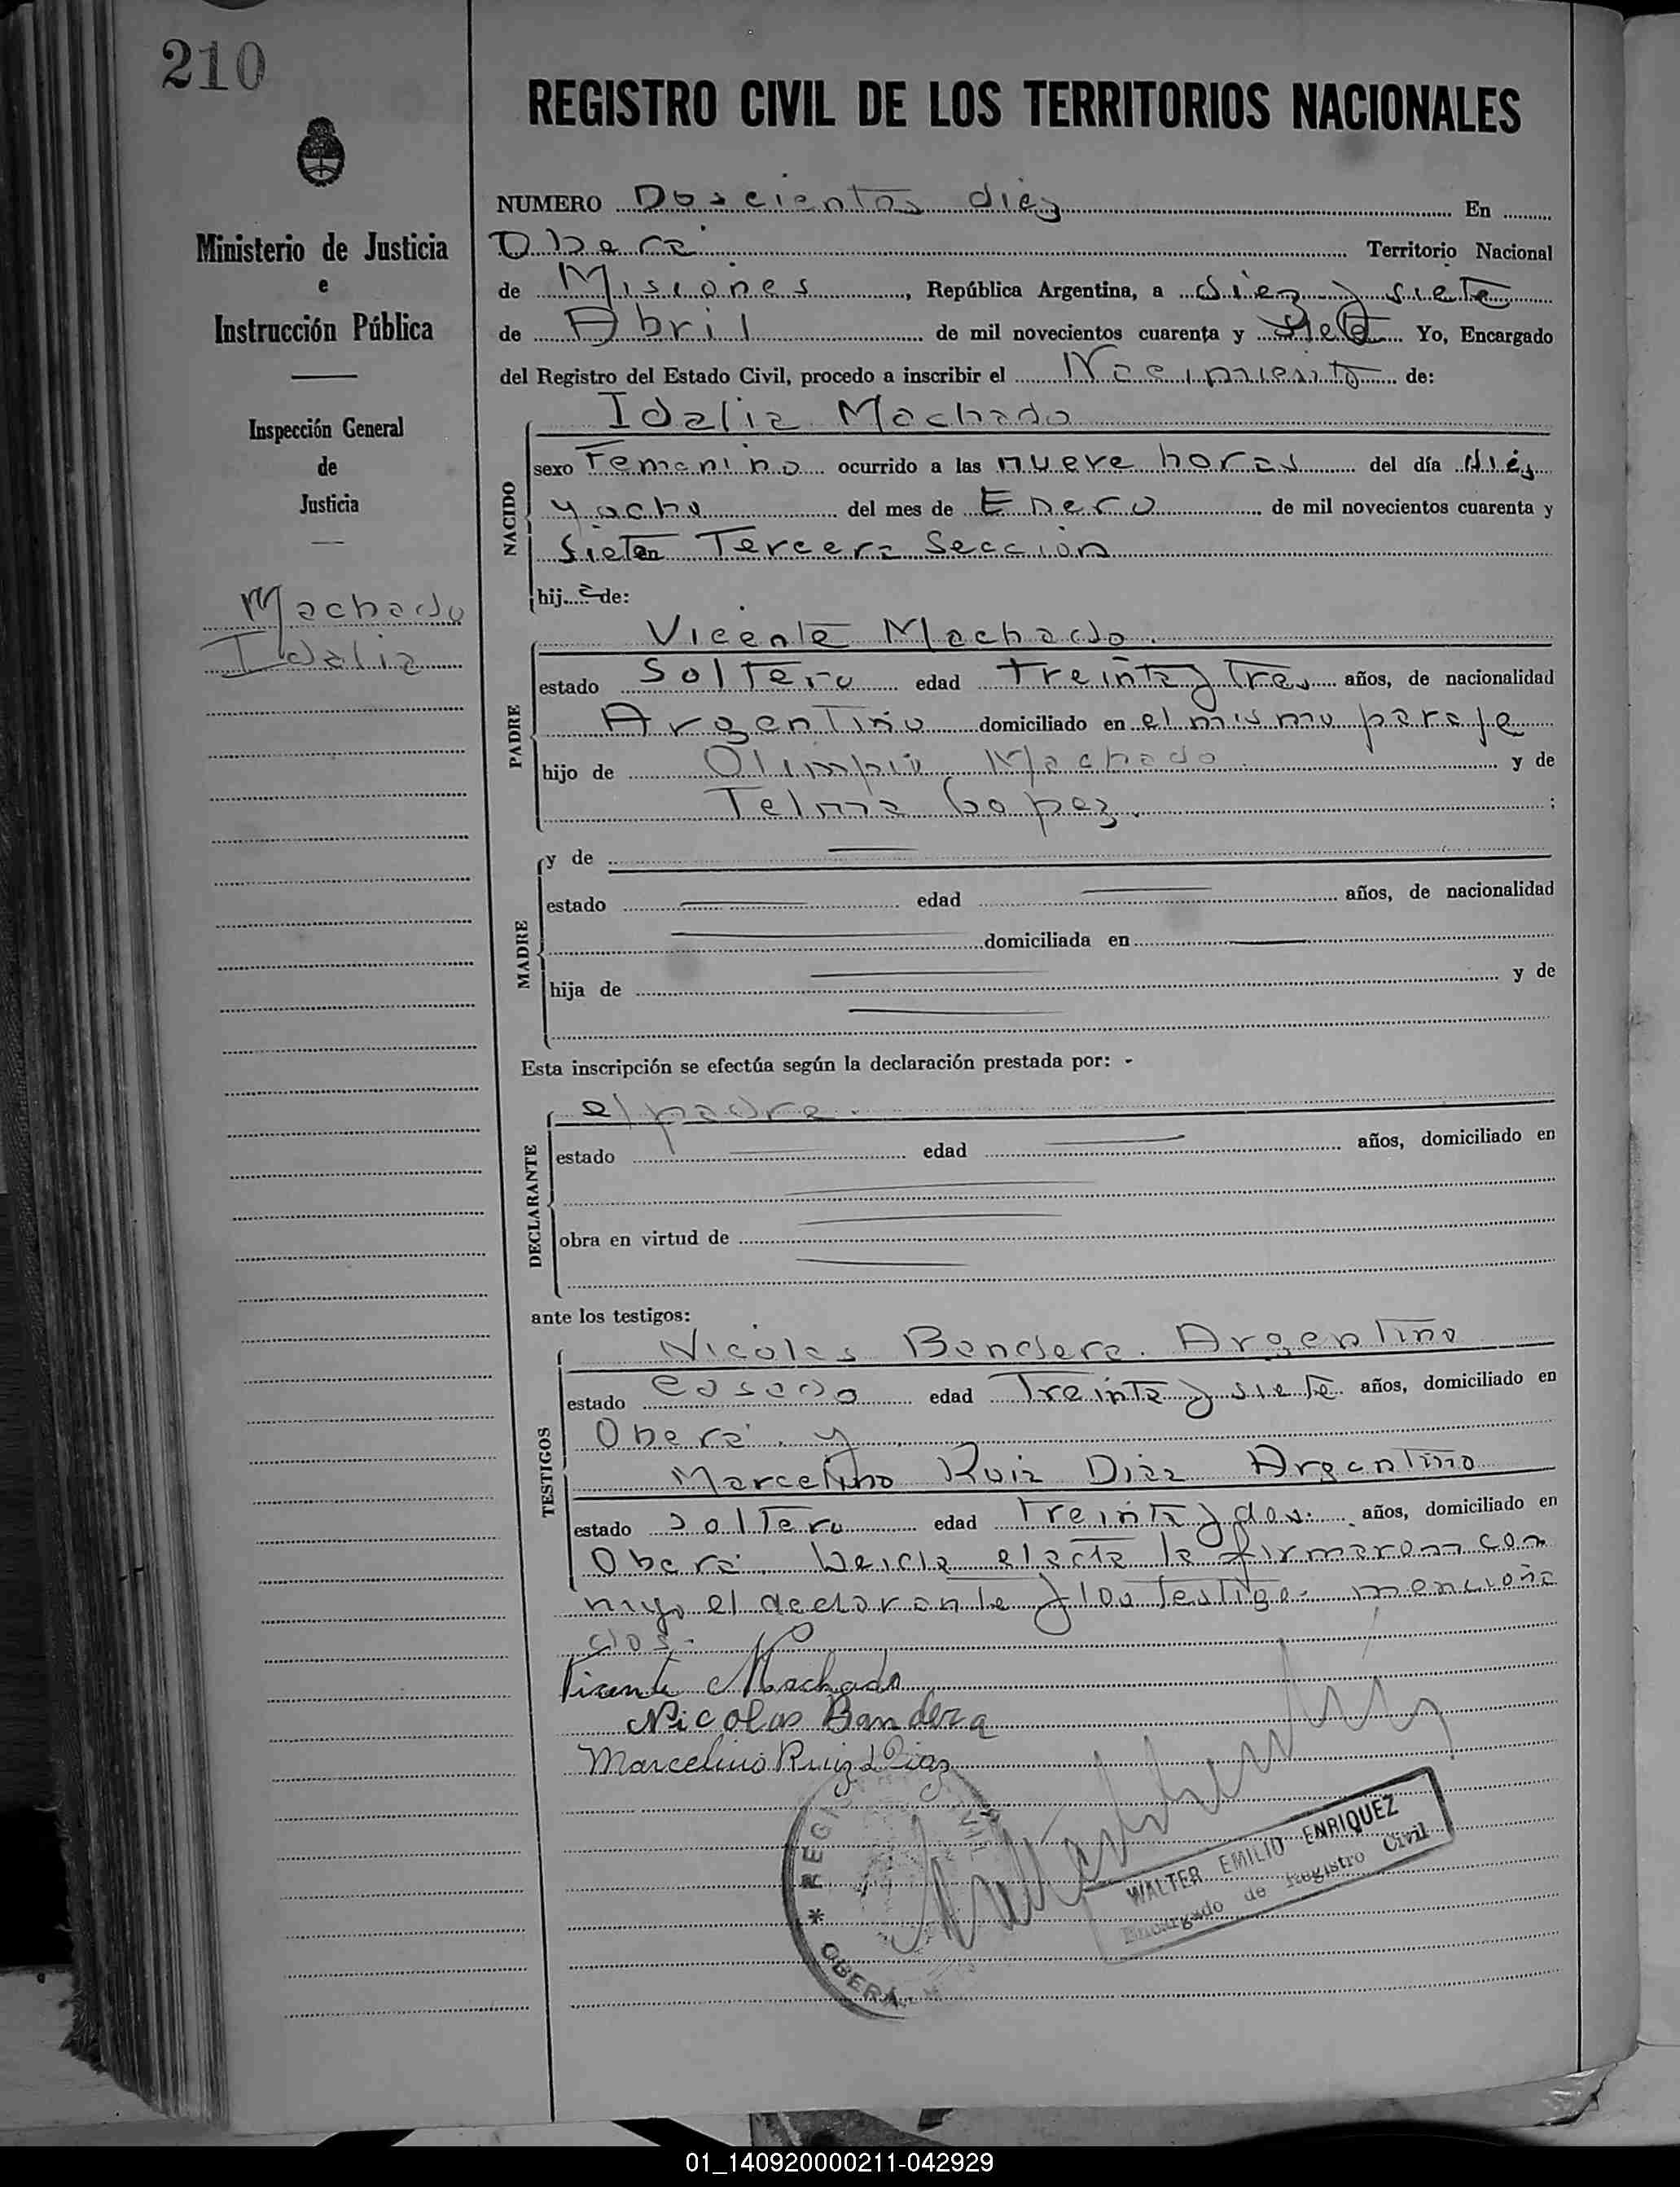 210
REGISTRO CIVIL DE LOS TERRITORIOS NACIONALES
Ministerio de Justicia
e
Instrucción Pública
Inspección General
de
Justicia
Machado
Idalia
NUMERO Doscientos diez En
Oberá Territorio Nacional
de Misiones, República Argentina, a diez y siete
de Abril de mil novecientos cuarenta y siete Yo, Encargado
del Registro del Estado Civil, procedo a inscribir el Nacimiento de:
NACIDO
Idalia Machado
sexo Femenino ocurrido a las nueve horas del día diez
y ocho del mes de Enero de mil novecientos cuarenta y
siete en Tercera Sección
hija de:
PADRE
Vicente Machado.
estado Soltero edad treinta y tres años, de nacionalidad
Argentino domiciliado en el mismo paraje
hijo de Olimpio Machado y de
Telma Lopez. ;
MADRE
y de
estado edad años, de nacionalidad
domiciliada en
hija de y de
Esta inscripción se efectúa según la declaración prestada por: -
DECLARANTE
el padre.
estado edad años, domiciliado en
obra en virtud de
ante los testigos:
TESTIGOS
Nicolas Bandera. Argentino
estado Casado edad Treinta y siete años, domiciliado en
Oberá. y
Marcelino Ruiz Diaz Argentino
estado soltero edad treinta y dos. años, domiciliado en
Oberá. Leida el acta la firmaron con
migo el declarante y los testigos menciona
dos.-
Vicente Machado
Nicolas Bandera
Marcelino Ruiz Diaz
* REGISTRO CIVIL
OBERÁ
WALTER EMILIO ENRIQUEZ
Encargado de Registro Civil
01_140920000211-042929